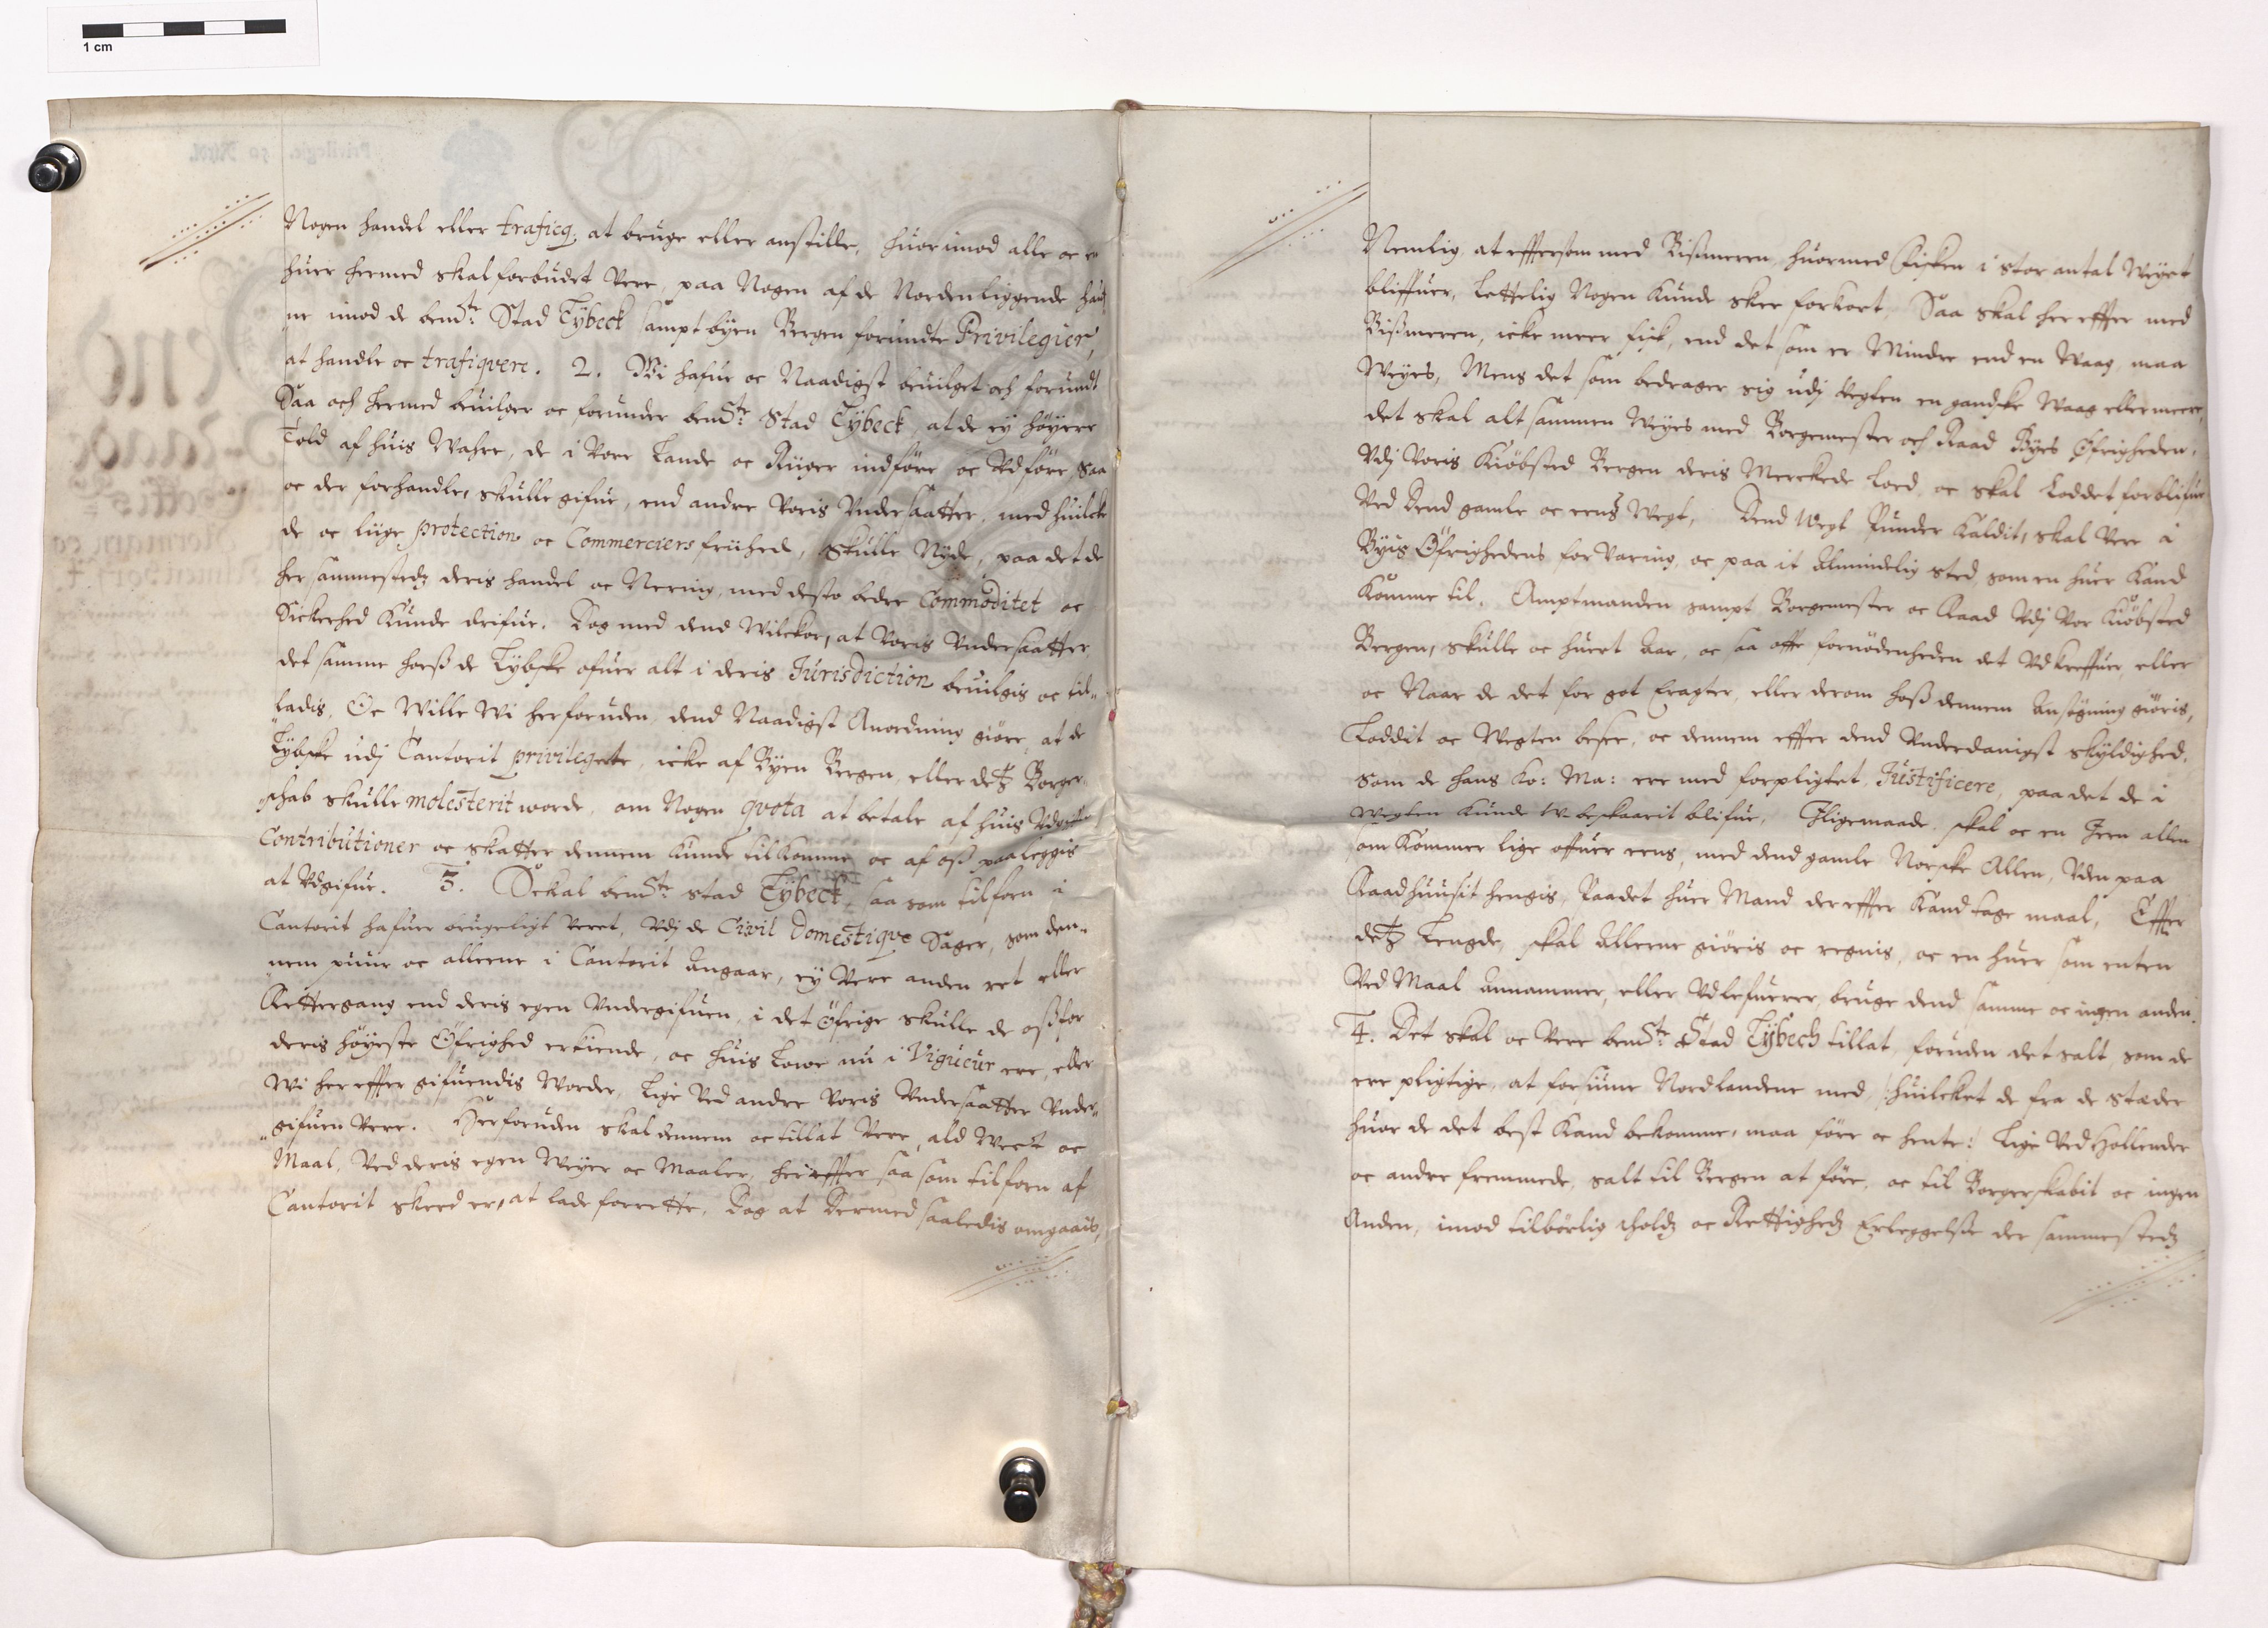 1 cm
Nogen handel eller traficq; at bruge eller anstille, huorimod alle oc en
huer hermed skal forbudet vere, paa Nogen af de Nordenliggende haf„
ne imod de bemte: Stad Lÿbeck sampt bÿen Bergen forundte Privilegier,
at handle oc trafiqvere. 2. Wi hafue oc Naadigst beuilget och forundt
Saa och hermed beuilger oc forunder bemte: Stad Lÿbeck, at de eÿ höÿere
Told af huis Wahre, de i vore Lande oc Rÿger indföre oc Vdföre, saa
oc der forhandle, skulle gifue, end andre Voris Vndersaatter, med huilcke
de oc liige protection oc Commerciers friihed, skulle Nÿde, paa det de
her sammestedz deris handel oc Nering, med desto bedre Commoditet oc
Sickerhed kunde drifue. Dog med dend Wilckor, at Voris Vndersaatter
det samme hoeß de Lÿbske ofuer alt i deris Jurisdiction beuilgis oc til„
ladis, Oc Wille Wi herforuden, dend Naadigst Anordning giöre, at de
Lÿbske udj Cantorit privilegerte, icke af Bÿen Bergen, eller detz Borger„
schab skulle molesterit worde, om Nogen qvota at betale af huis Vdgifter
Contributioner oc skatter dennem kunde tilkomme oc af oß paaleggis
at Vdgifue. 3. Schal bemte stad Lÿbeck, saa som tilforn i
Cantorit hafuer brugeligt veret, Vdj de Civil Domestiqve Sager, som den„
nem puur oc alleene i Cantorit Angaar, eÿ vere anden ret eller
Rettergang end deris egen Vndergifuen, i det Öfrige skulle de oß for
deris höÿeste Öfrighed erkiende, oc huis Lowe nu i Vigueur ere, eller
Wi her effter gifuendis Worder, Lige ved andre Voris Vndersaatter Vnder„
gifuen vere. Herforuden skal dennem oc tillat vere, ald Wect oc
Maal, ved deris egen Weÿer oc Maaler, her effter saa som tilforn af
Cantorit skeed er, at lade forrette, Dog at Dermed saaledis omgaais,
Nemlig, at efftersom med Bißmeren, huormed Fisken i stor antal Weÿet
bliffuer, Lettelig Nogen kunde skee forkort, Saa skal her effter med
Bißmeren, icke meer fisk, end det som er Mindre end en Waag, maa
Weÿes, Mens det som bedrager sig udj Vegten en gandske Waag eller meere,
det skal altsammen Weÿes med Borgemester och Raad Bÿes Öfrigheden,
Vdj Voris Kiöbsted Bergen deris Merckede Lod, oc skal Loddet forblifue
Ved Dend gamle oc eens Wegt, Dend Wegt Punder kaldit, skal vere i
Bÿis Öfrighedens forvaring, oc paa it Almindelig sted, som en huer kand
komme til. Amptmanden sampt Borgemester oc Raad Vdj Vor Kiöbsted
Bergen, skulle oc huert Aar, oc saa offte fornödenheden det Vdkreffuer, eller
oc Naar de det for got Eragter, eller derom hoß dennem Ansögning giöris,
Loddit oc Wegten besee, oc dennem effter dend Vnderdanigst skÿldighed,
som de hans Ko: Ma: ere med forpligtet, Justificere, paa det de i
Wegten kunde Wbeskaarit blifue, Jligemaade, skal oc en Jern allen
som kommer lige offuer eens, med dend gamle Norske Allen, Vden paa
Raadhuusit hengis, Paadet huer Mand der effter kand tage maal, Effter
detz Lengde, skal Allerne giöris oc regnis, oc en huer som enten
Ved Maal annammer, eller Vdlefuerer, bruge dend samme oc ingen anden.
4. Det skal oc vere bemte Stad Lÿbech tillat, foruden det salt, som de
ere pligtige, at forsiune Nordlandene med, /:huilcket de fra de stæder
huor de det best kand bekomme, maa före oc hente:/ Lige ved Hollender
oc andre fremmede, salt til Bergen at före, oc til Borgerskabit oc ingen
Anden, imod tilbörlig tholdz oc Rettighedz Erleggelße der sammestedz